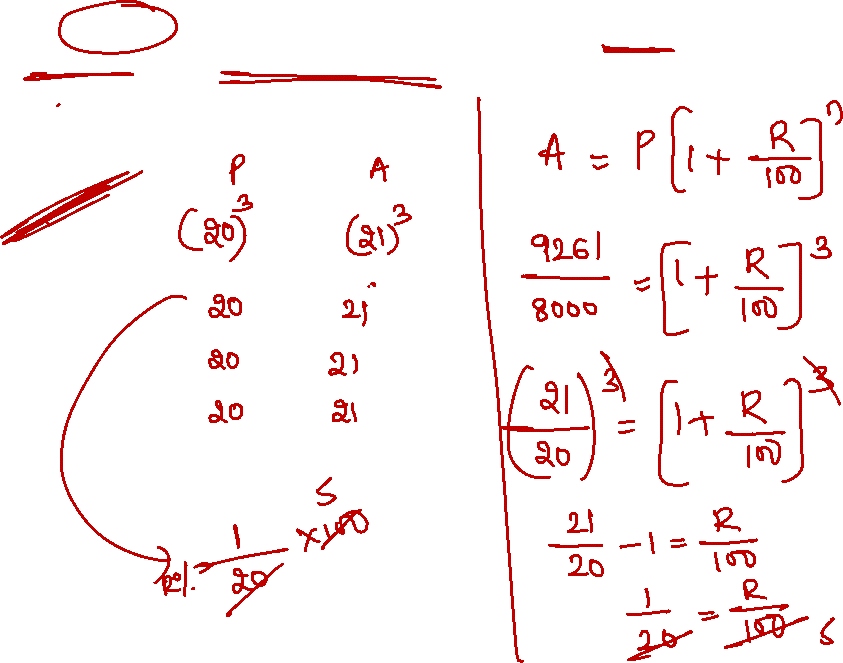 P A
(20)³ (21)³
20 21
20 21
20 21
R%. 1/20 × 100 5
A = P[1 + R/100]ⁿ
9261/8000 = [1 + R/100]³
(21/20)³ = [1 + R/100]³
21/20 - 1 = R/100
1/20 = R/100 5